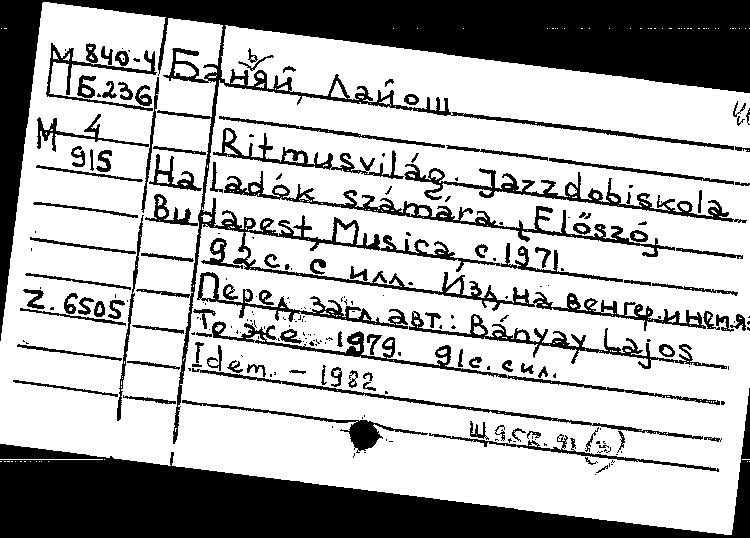 М 840-4
Б.236
Баняй, Лайош
М 4
915
Ritmusvilág. Jazzdobiskola
Haladók számára. [Előszó]
Budapest, Musica, c.1971.
92 с. с илл. Изд. на венгер. и нем. яз.
Z. 6505
Перед загл. авт.: Bányay Lajos
То же 1979. 91 с. с ил.
Idem. – 1982.